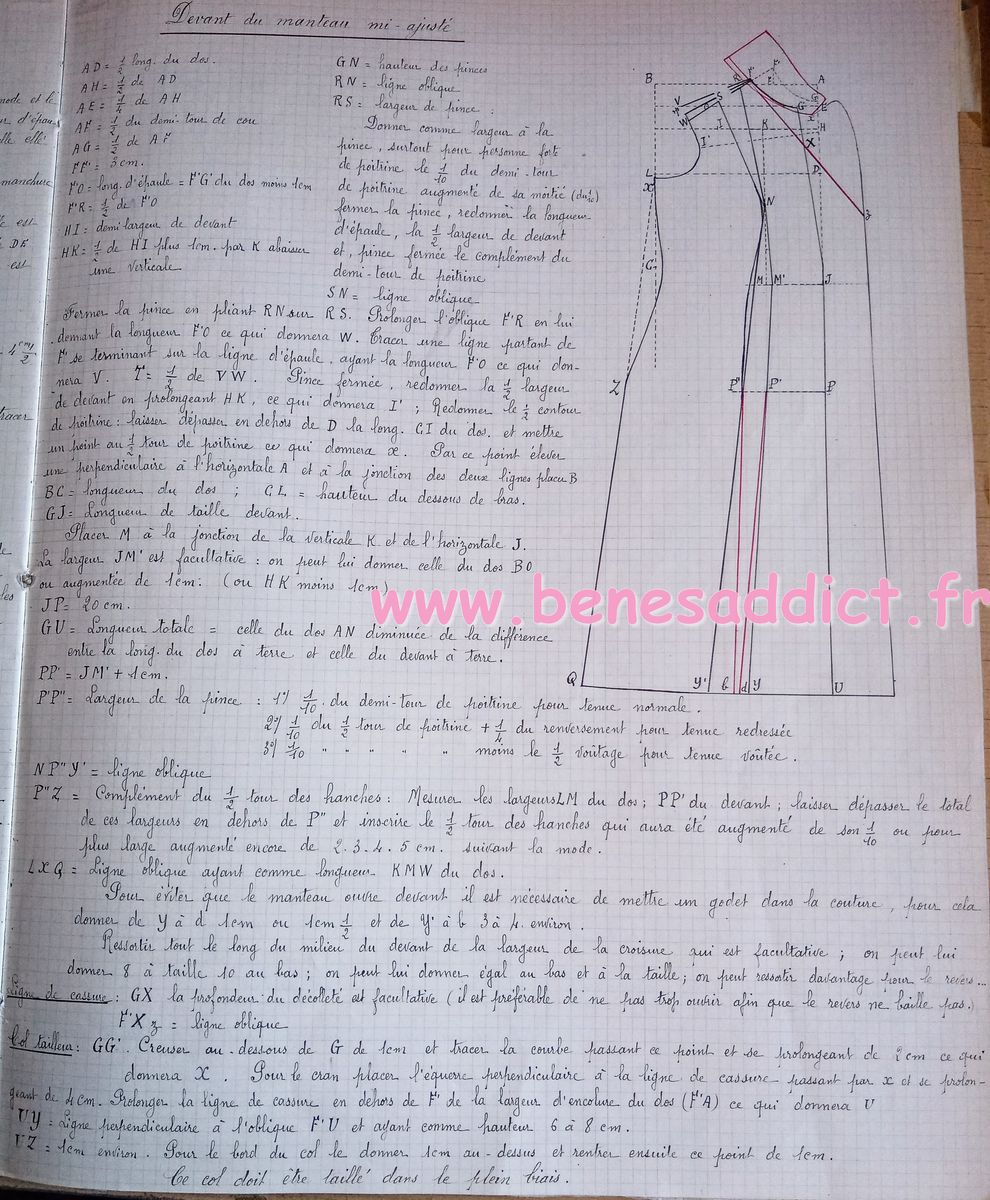 Devant du manteau mi-ajusté
AD = 1/2 long. du dos.
AH = 1/2 de AD
AE = 1/2 de AH
AF = 1/2 du demi-tour de cou
AG = 1/2 de AF
FF' = 3 cm.
F'O = long. d'épaule = F'G' du dos moins 1cm
F'R = 1/2 de F'O
HI = demi-largeur de devant
HK = 1/2 de HI plus 1cm. par K abaisser
une verticale
GN = hauteur des pinces
RN = ligne oblique
RS = largeur de pince :
Donner comme largeur à la
pince, surtout pour personne forte
de poitrine le 1/10 du demi-tour
de poitrine augmenté de sa moitié (du 1/10)
fermer la pince, redonner la longueur
d'épaule, la 1/2 largeur de devant
et, pince fermée le complément du
demi-tour de poitrine
SN = ligne oblique
Fermer la pince en pliant RN sur RS. Prolonger l'oblique F'R en lui
donnant la longueur F'O ce qui donnera W. Tracer une ligne partant de
F' se terminant sur la ligne d'épaule, ayant la longueur F'O ce qui don-
nera V. T = 1/2 de VW. Pince fermée, redonner la 1/2 largeur
de devant en prolongeant HK, ce qui donnera I' ; Redonner le 1/2 contour
de poitrine : laisser dépasser en dehors de D la long. CI du dos. et mettre
un point au 1/2 tour de poitrine ce qui donnera x. Par ce point élever
une perpendiculaire à l'horizontale A et à la jonction des deux lignes placer B
BC = longueur du dos ; CL = hauteur du dessous de bras.
GJ = Longueur de taille devant.
Placer M à la jonction de la verticale K et de l'horizontale J.
La largeur JM' est facultative : on peut lui donner celle du dos BO
ou augmentée de 1cm. (ou HK moins 1cm)
JP = 20 cm.
GU = Longueur totale = celle du dos AN diminuée de la différence
entre la long. du dos à terre et celle du devant à terre.
PP' = JM' + 1cm.
P'P" = Largeur de la pince : 1°/ 1/10 du demi-tour de poitrine pour tenue normale.
2°/ 1/10 du 1/2 tour de poitrine + 1/4 du renversement pour tenue redressée
3°/ 1/10 " " " " " moins le 1/2 voûtage pour tenue voûtée.
NP"Y' = ligne oblique
P"Z = Complément du 1/2 tour des hanches : Mesurer les largeurs LM du dos ; PP' du devant ; laisser dépasser le total
de ces largeurs en dehors de P" et inscrire le 1/2 tour des hanches qui aura été augmenté de son 1/10 ou pour
plus large augmenté encore de 2.3.4.5 cm. suivant la mode.
LXQ = Ligne oblique ayant comme longueur KMW du dos.
Pour éviter que le manteau ouvre devant il est nécessaire de mettre un godet dans la couture, pour cela
donner de Y à d 1cm ou 1cm 1/2 et de Y' à b 3 à 4. environ.
Ressortir tout le long du milieu du devant de la largeur de la croisure qui est facultative ; on peut lui
donner 8 à taille 10 au bas ; on peut lui donner égal au bas et à la taille ; on peut ressortir davantage pour le revers...
Ligne de cassure : GX la profondeur du décolleté est facultative (il est préférable de ne pas trop ouvrir afin que le revers ne baille pas.)
F'Xz = ligne oblique
Col tailleur : GG'. Creuser au-dessous de G de 1cm et tracer la courbe passant ce point et se prolongeant de 2cm ce qui
donnera X. Pour le cran placer l'équerre perpendiculaire à la ligne de cassure passant par x et se prolon-
geant de 4cm. Prolonger la ligne de cassure en dehors de F' de la largeur d'encolure du dos (F'A) ce qui donnera U
UY = ligne perpendiculaire à l'oblique F'U et ayant comme hauteur 6 à 8 cm.
VZ = 1cm environ. Pour le bord du col le donner 1cm au-dessus et rentrer ensuite ce point de 1cm.
Ce col doit être taillé dans le plein biais.
www.benesaddict.fr
B
A
V
S
W
G
E
I
K
H
I'
X
L
D
X
N
z
C
M
M'
J
Z
P"
P'
P
Q
Y'
b
d
Y
U
mode et le
manchure
est
DE
est
4 cm 1/2
tracer
les